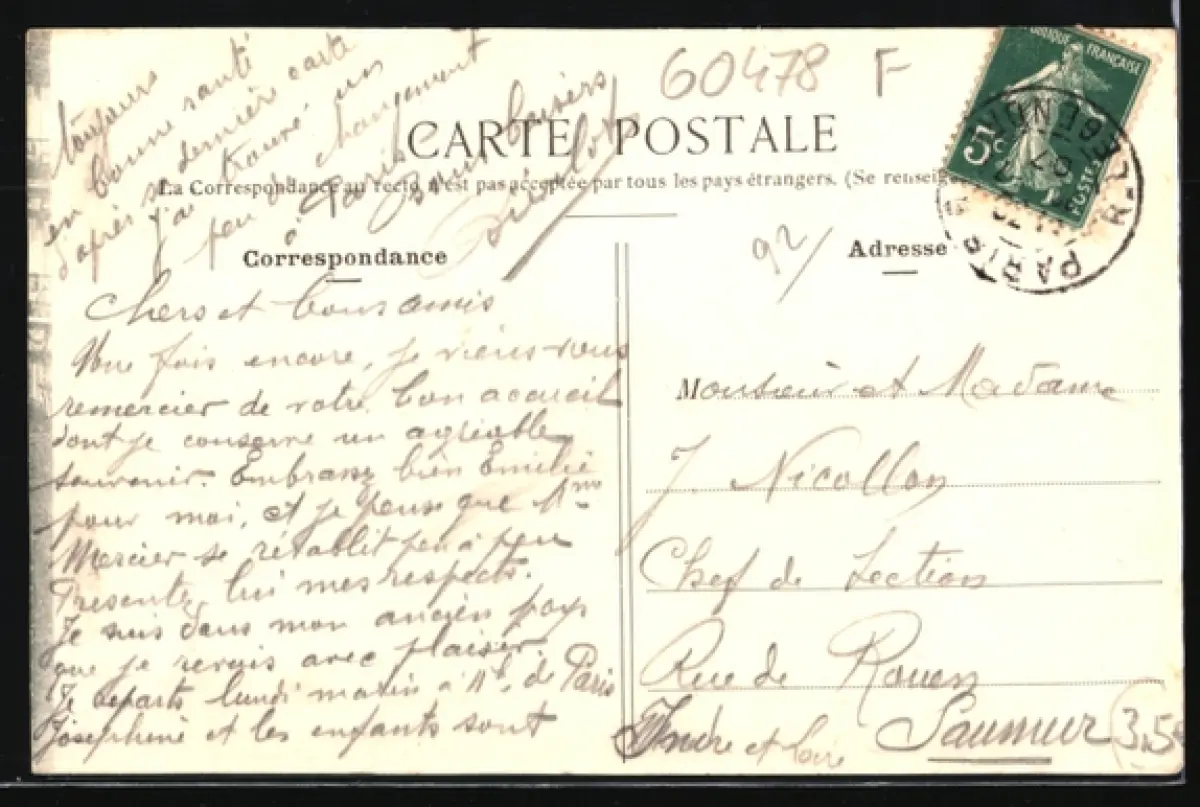 60478 F
RÉPUBLIQUE FRANÇAISE
5c
POSTES
PARIS
CARTE POSTALE
La Correspondance au recto n'est pas acceptée par tous les pays étrangers. (Se renseigner
Correspondance
92/
Adresse
Chers et bons amis
Une fois encore, je viens vous
remercier de votre bon accueil
dont je conserve un agréable
souvenir. Embrassez bien Emilie
pour moi, et je pense que Mme
Mercier se rétablit peu à peu
Presentez lui mes respects.
Je suis dans mon ancien pays
que je revois avec plaisir.
Je reparts lundi matin à 11h de Paris
Joséphine et les enfants sont
toujours
en bonne santé
d'après sa dernière carte
j'ai trouvé un
peu de changement
à Paris
Bons baisers
Monsieur et Madame
J. Nicollon
Chef de Section
Rue de Rouen
Saumur
Indre et Loire
3,5